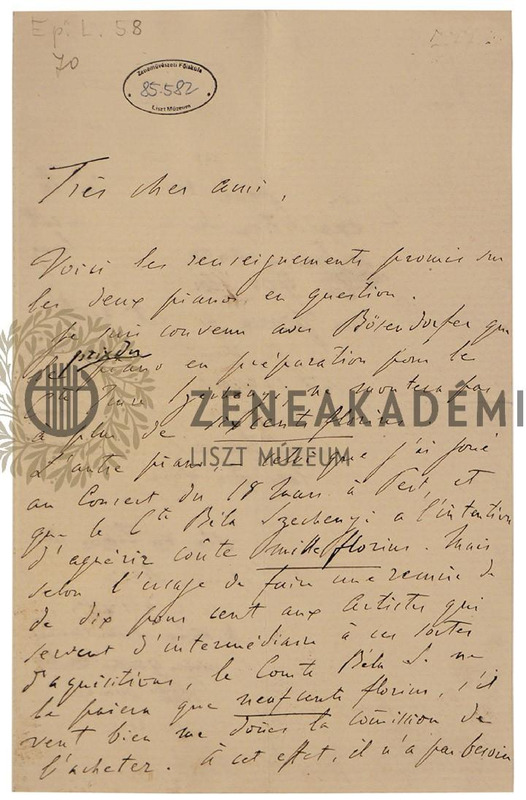 Ep. L. 58
70
Zeneművészeti Főiskola
85.582
Liszt Múzeum
Très cher ami,
Voici les renseignements promis sur
les deux pianos en question.
Je suis convenu avec Bösendorfer que
le prix du
piano en préparation pour le
ne montera pas
à plus de six cents florins.
ZENEAKADÉMI
LISZT MÚZEUM
L'autre piano, que j'ai joué
au Concert du 18 Mars à Pest, et
que le Cte Béla Szechenyi a l'intention
d'aquérir coûte mille florins. Mais
selon l'usage de faire une remise de
de dix pour cent aux Artistes qui
servent d'intermédiaire à ces sortes
d'aquisitions, le Comte Béla S. ne
la paiera que neuf cents florins, s'il
veut bien me doñer la comission de
l'acheter. À cet effet, il n'a pas besoin